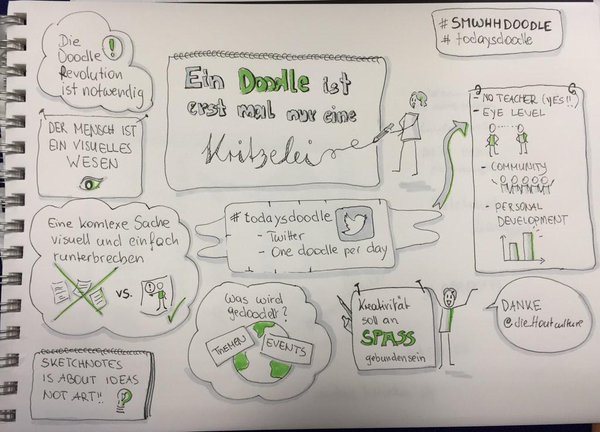 Die
Doodle
Revolution
ist notwendig
!
# SMWHHDOODLE
# todaysdoodle
Ein Doodle ist
erst mal nur eine
Kritzelei
- NO TEACHER (YES!!)
- EYE LEVEL
- COMMUNITY
- PERSONAL
DEVELOPMENT
DER MENSCH IST
EIN VISUELLES
WESEN
# todaysdoodle
- Twitter
- One doodle per day
Eine komlexe Sache
visuell und einfach
runterbrechen
vs.
Was wird
gedoodelt?
THEMEN
EVENTS
Kreativität
soll an
SPASS
gebunden sein
DANKE
@die_Hautculture
SKETCHNOTES
IS ABOUT IDEAS
NOT ART!!